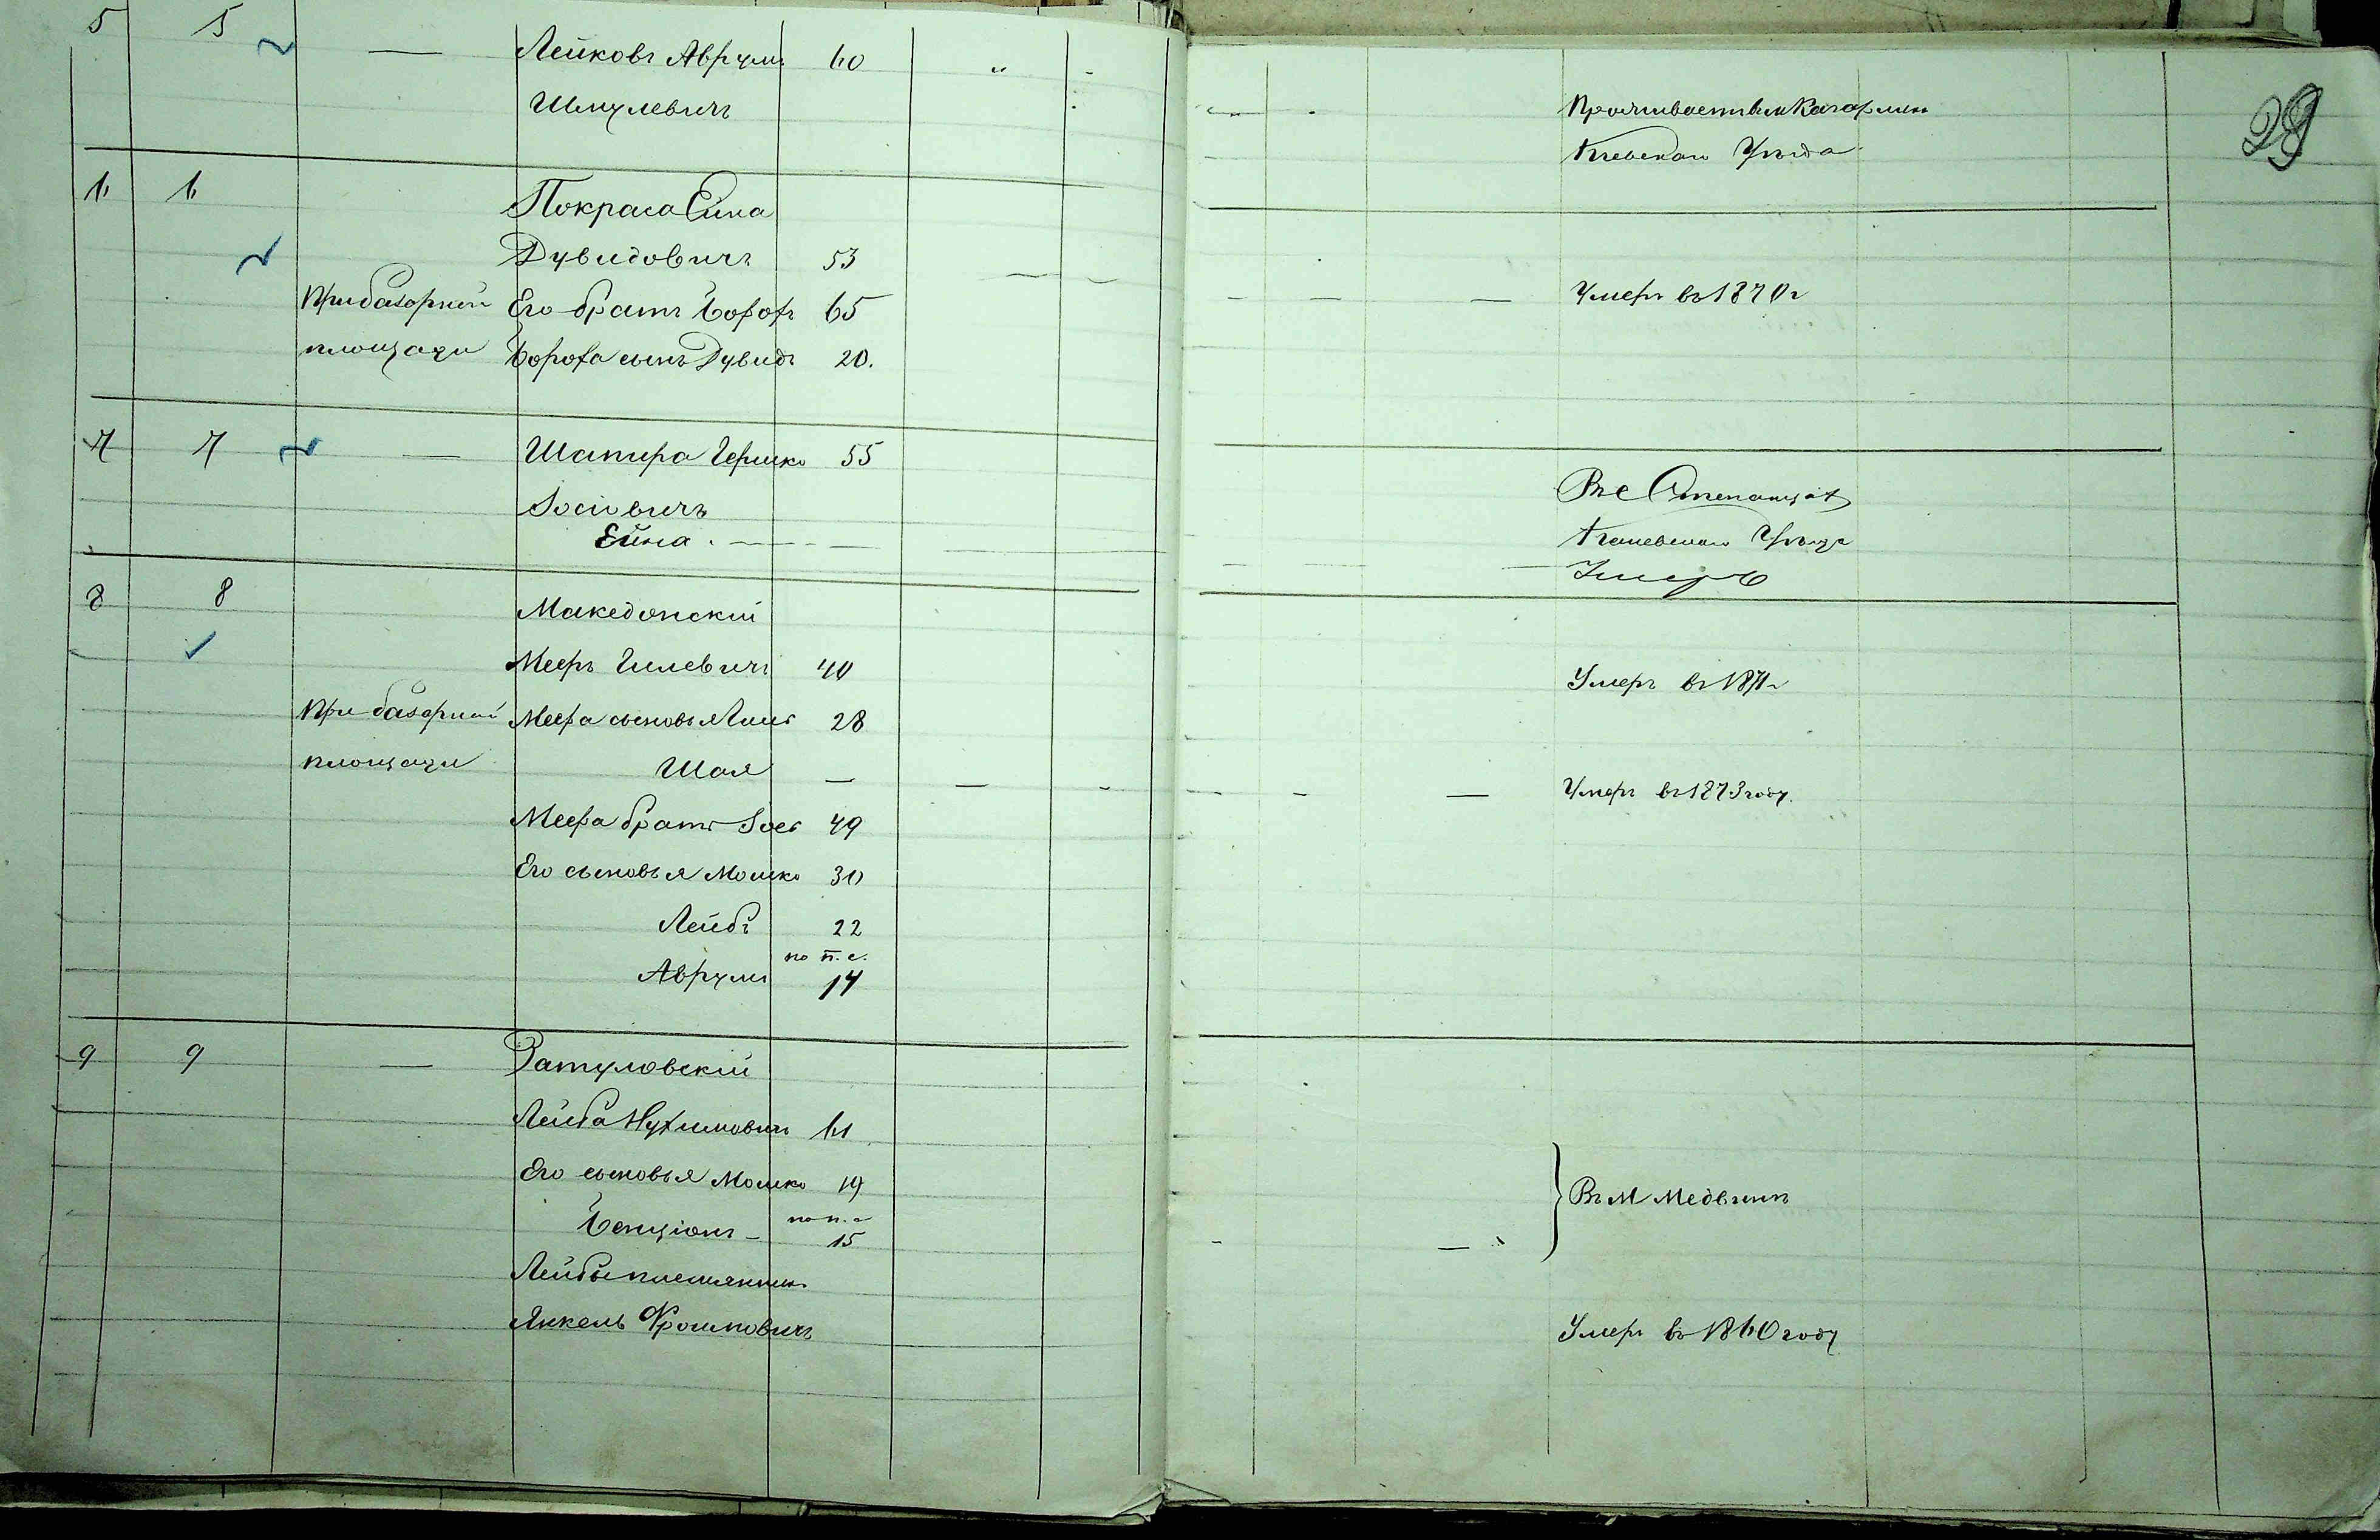 5 5 — Лейковъ Аврумъ 60 „ -
Шмулевичъ
Проживаетъ въ м. Кагарлик
Кіевскаго Уѣзда
29
6 6
Покраса Ейна
Дувидовичъ 53
При базарной Его братъ Борохъ 65 — — — Умеръ въ 1870 г
площади Бороха сынъ Дувидъ 20.
7 7 — Шапира Гершко 55
Іосіовичъ
Въ с Степанцахъ
Ейна . —
Каневскаго Уѣзда
Умеръ
8 8
Македонскій
Мееръ Гилевичъ 40
Умеръ въ 1871 г
При базарной Меера сыновья 28
площади Шая — — - - - — Умеръ въ 1873 году.
Меера братъ Іосъ 49
Его сыновья Мошко 30
Лейбъ 22
по п. с.
Аврумъ 14
9 9 — Затуловскій
Лейба Нухимовичъ 61
Его сыновья Мошко 19
Въ М Медвинъ
Бенціонъ - по п. с
15
Лейбы племянникъ
Янкель Фроимовичъ
Умеръ въ 1860 году